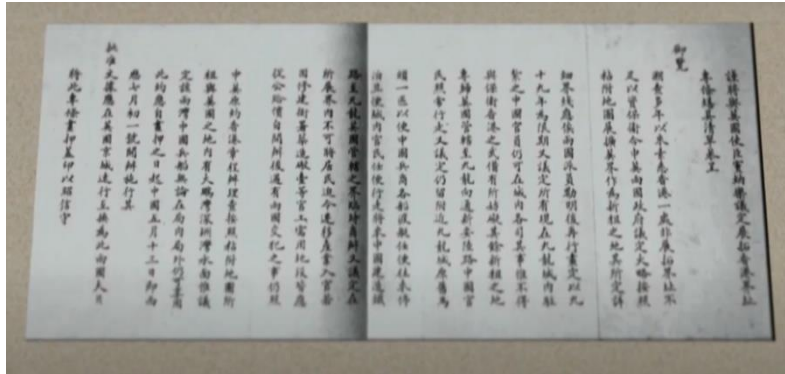 謹將與英國使臣竇納樂議定展拓香港界址
專條繕具清單恭呈
御覽
溯查多年以來素悉香港一處非展拓界址不
足以資保衛今中英兩國政府議定大略按照
粘附地圖展擴英界作為新租之地其所定詳
細界綫應俟兩國派員勘明後再行畫定以九
十九年為限期又議定所有現在九龍城內駐
紮之中國官員仍可在城內各司其事惟不得
與保衛香港之武備有所妨礙其餘新租之地
專歸英國管轄至九龍向通新安陸路中國官
民照常行走又議定仍留附近九龍城原舊馬
頭一區以便中國兵商各船渡艇任便往來停
泊且便城內官民任便行走將來中國建造鐵
路至九龍英國管轄之界臨時商辦又議定在
所展界內不可將居民迫令遷移產業入官若
因修建衙署築造礮臺等官工需用地段皆應
從公給價自開辦後遇有兩國交犯之事仍照
中英原約香港章程辦理查按照粘附地圖所
租與英國之地內有大鵬灣深圳灣水面惟議
定該兩灣中國兵船無論在局內局外仍可享用
此約應自畫押之日起中國五月十三日即西
曆七月初一號開辦施行其
批准文據應在英國京城速行互換為此兩國大
將此專條畫押蓋印以昭信守